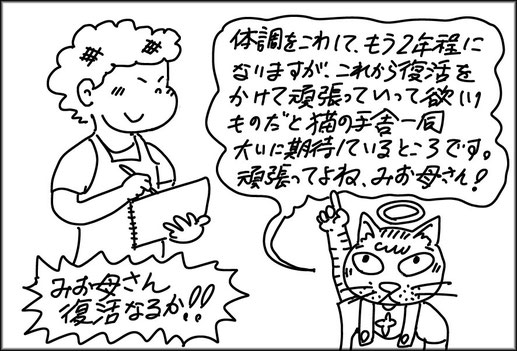 体調をこわして、もう2年程に
なりますが、これから復活を
かけて頑張っていって欲しい
ものだと猫の手舎一同
大いに期待しているところです。
頑張ってよね、みお母さん!
みお母さん
復活なるか!!